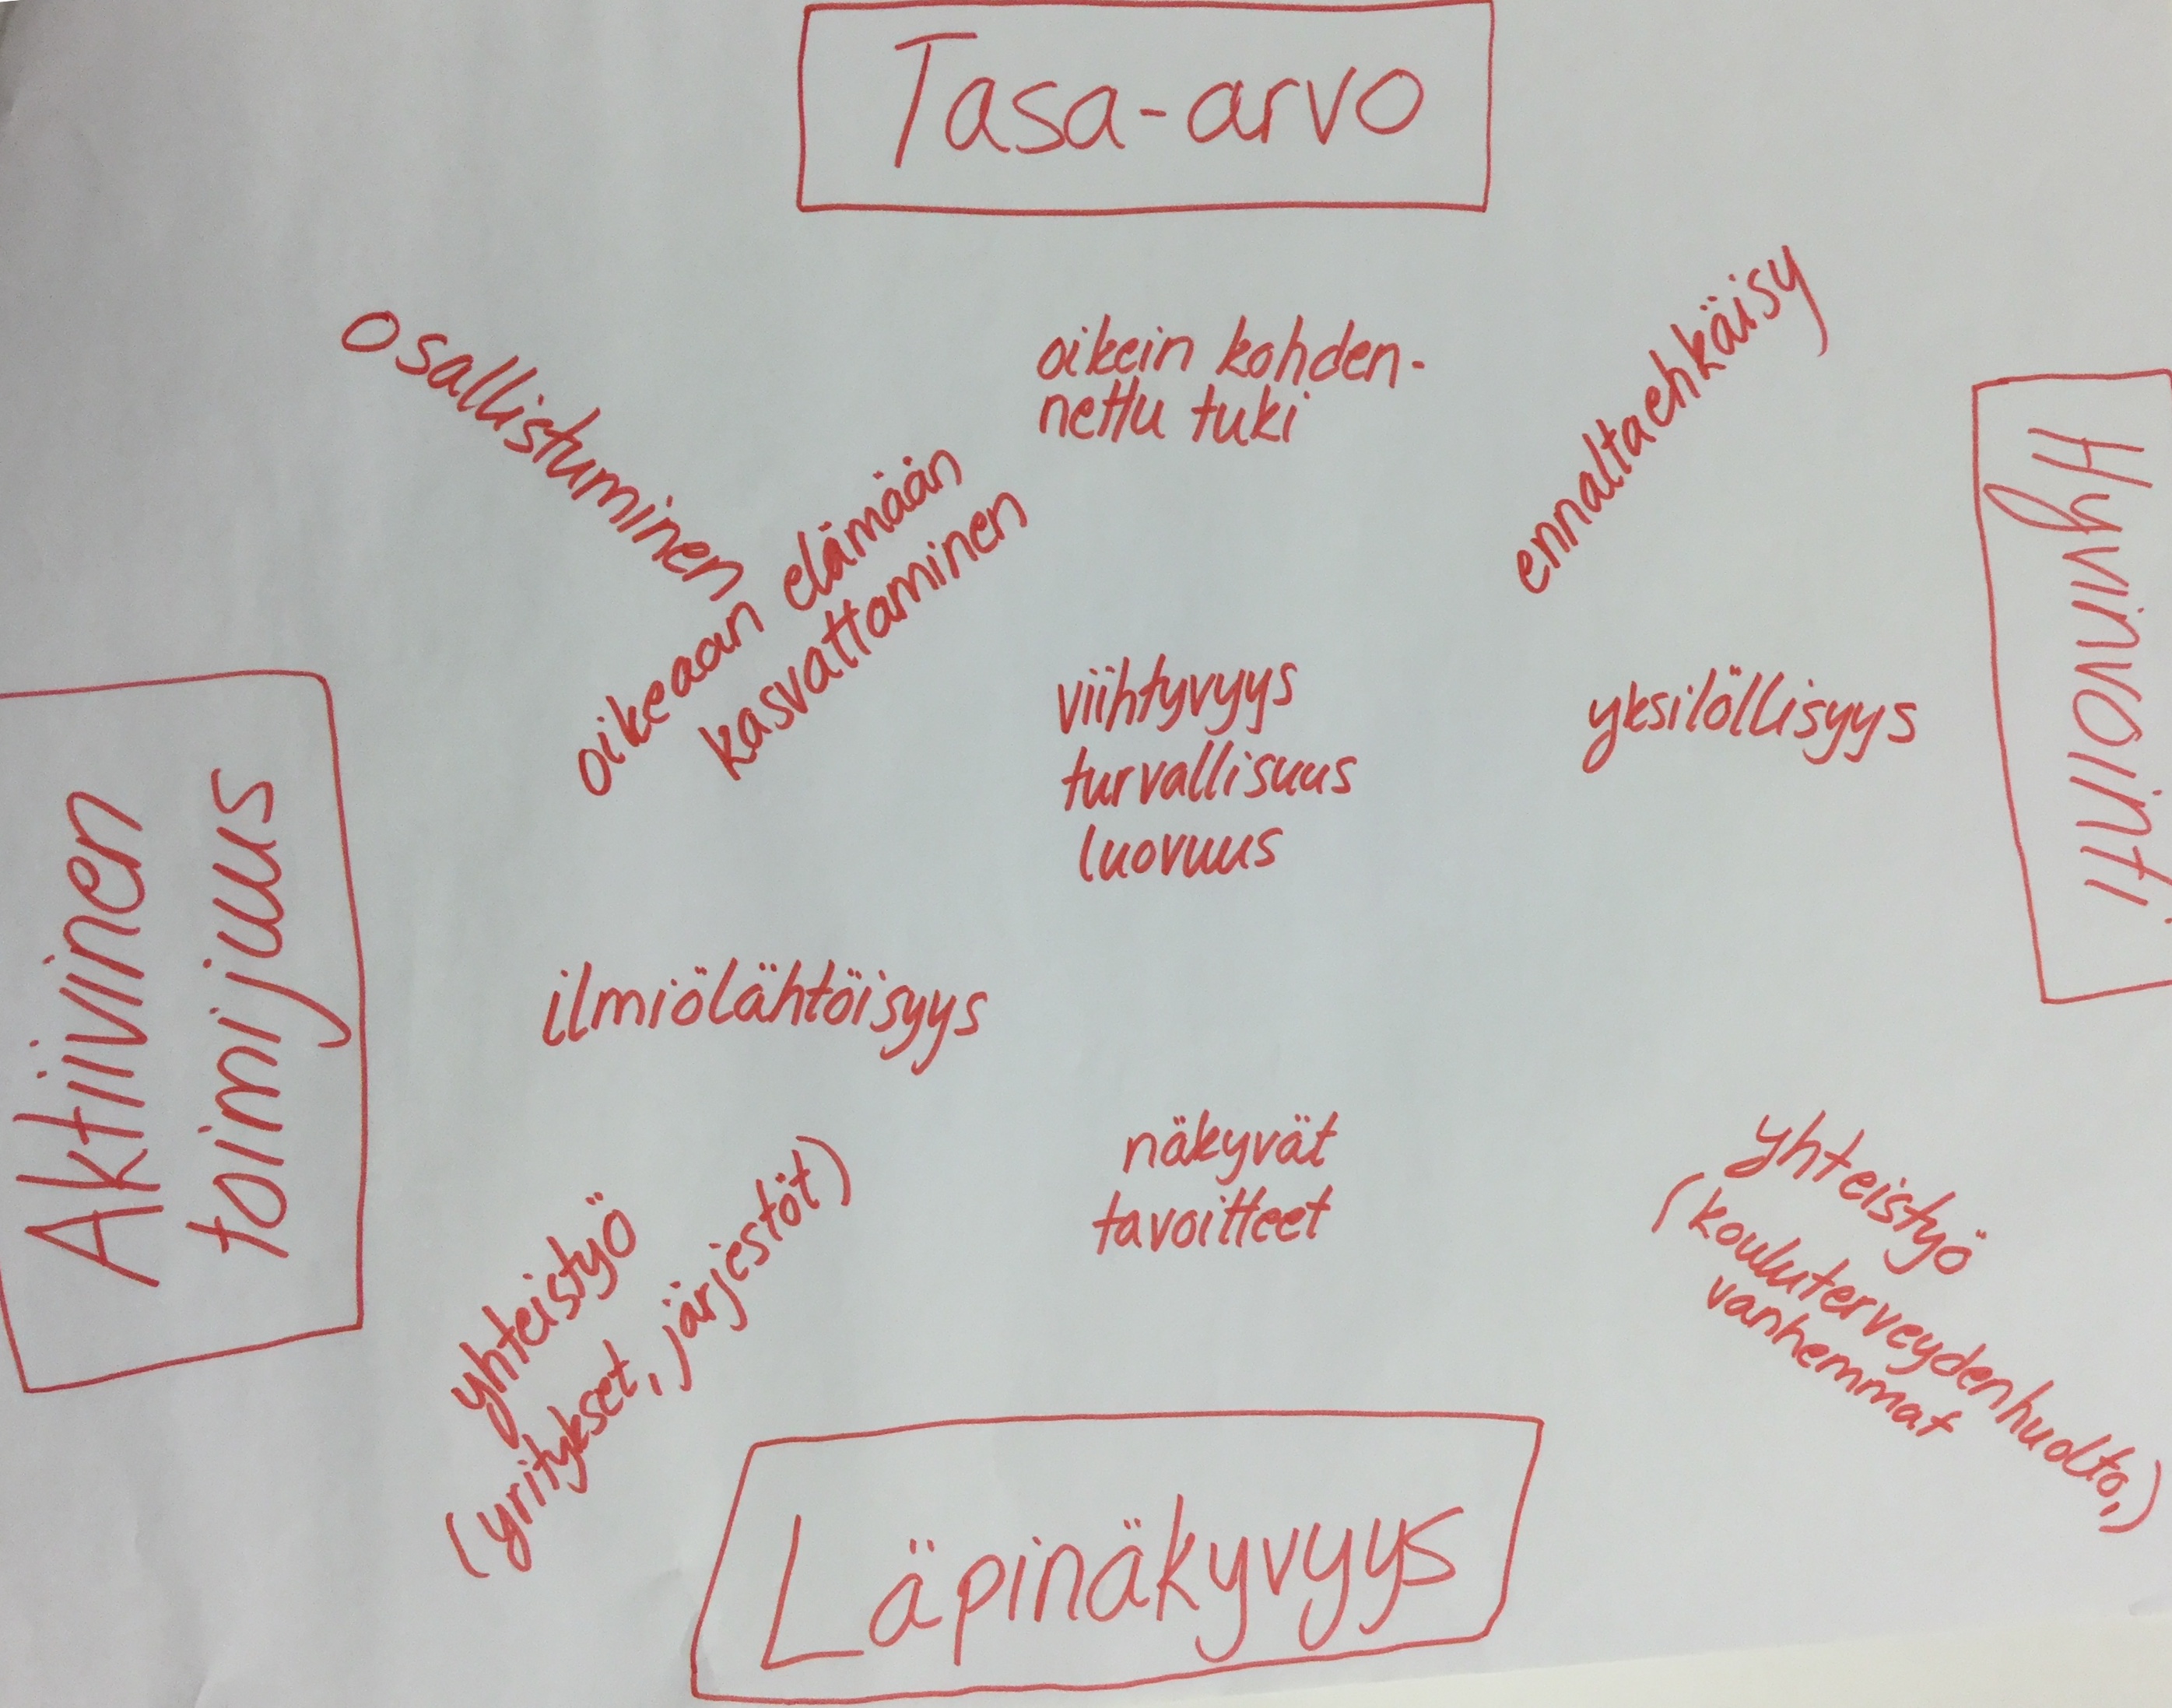 Tasa-arvo
osallistuminen
oikein kohden-
nettu tuki
ennaltaehkäisy
Hyvinvointi
oikeaan elämään
kasvattaminen
viihtyvyys
turvallisuus
luovuus
yksilöllisyys
Aktiivinen
toimijuus
ilmiölähtöisyys
näkyvät
tavoitteet
yhteistyö
(yritykset, järjestöt)
yhteistyö
(kouluterveydenhuolto,)
vanhemmat
Läpinäkyvyys